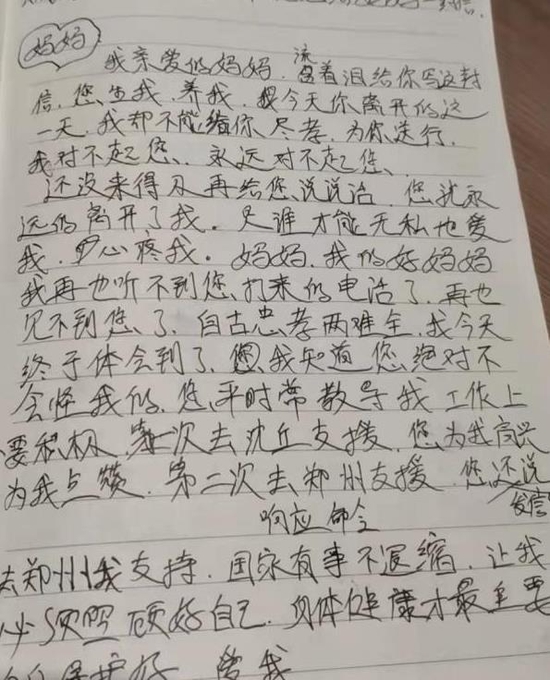 妈妈
我亲爱的妈妈，流着泪给你写这封
信，您生我，养我，今天你离开的这
一天，我却不能给你尽孝，为你送行，
我对不起您，永远对不起您、
还没来得及再给您说说话，您就永
远的离开了我。又谁才能无私地爱
我，心疼我。妈妈，我的好妈妈
我再也听不到您打来的电话了，再也
见不到您了，自古忠孝两难全，我今天
终于体会到了，我知道您绝对不
会怪我的，您平时常教导我工作上
要积极，第一次去沈丘支援，您为我高兴
为我点赞，第二次去郑州支援，您还说
响应命令 发信
去郑州我支持，国家有事不退缩，让我
必须照顾好自己，身体健康才最主要
保护好